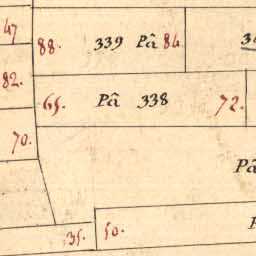 47
88. 339 Pâ 84
82.
65. Pâ 338 72.
70.
35. 50.